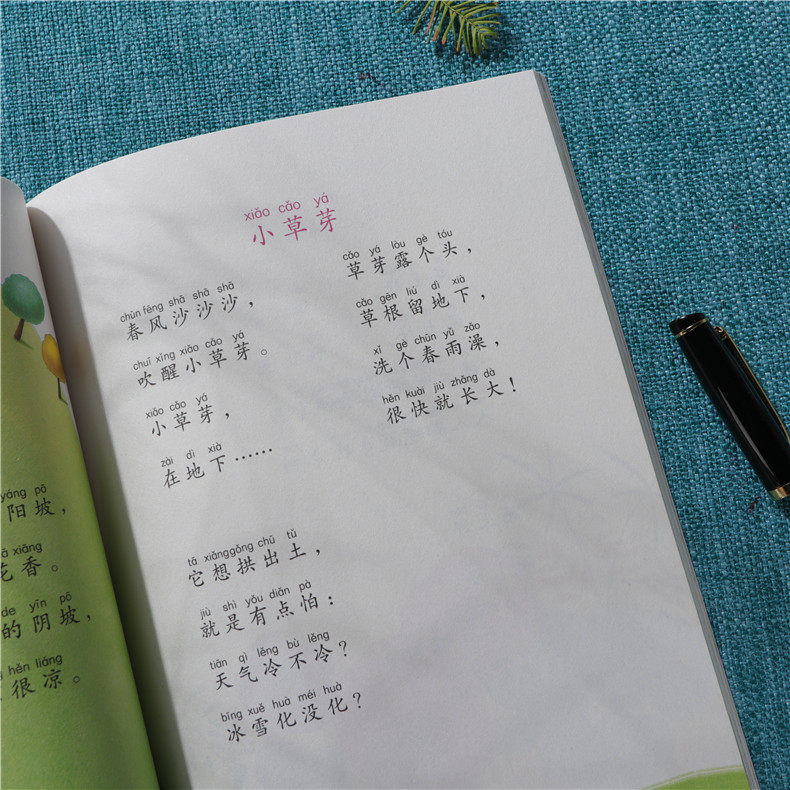 yáng pō
阳坡，
xiāng
花香。
de yīn pō
的阴坡，
hěn liáng
很凉。
xiǎo cǎo yá
小草芽
chūn fēng shā shā shā
春风沙沙沙，
chuī xǐng xiǎo cǎo yá
吹醒小草芽。
xiǎo cǎo yá
小草芽，
zài dì xià
在地下……
tā xiǎng gǒng chū tǔ
它想拱出土，
jiù shì yǒu diǎn pà
就是有点怕：
tiān qì lěng bù lěng
天气冷不冷？
bīng xuě huà méi huà
冰雪化没化？
cǎo yá lòu gè tóu
草芽露个头，
cǎo gēn liú dì xià
草根留地下，
xǐ gè chūn yǔ zǎo
洗个春雨澡，
hěn kuài jiù zhǎng dà
很快就长大！